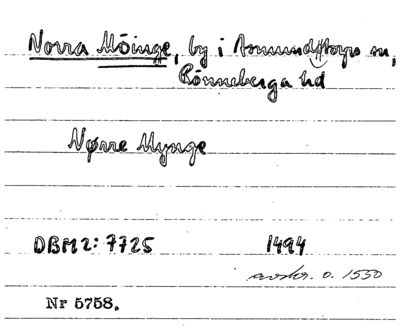 Norra Möinge, by i Asmundtorps sn,
Rönneberga hd
Nørre Mynge
DBM2: 7725 1494
avskr. o. 1550
Nr 5758.